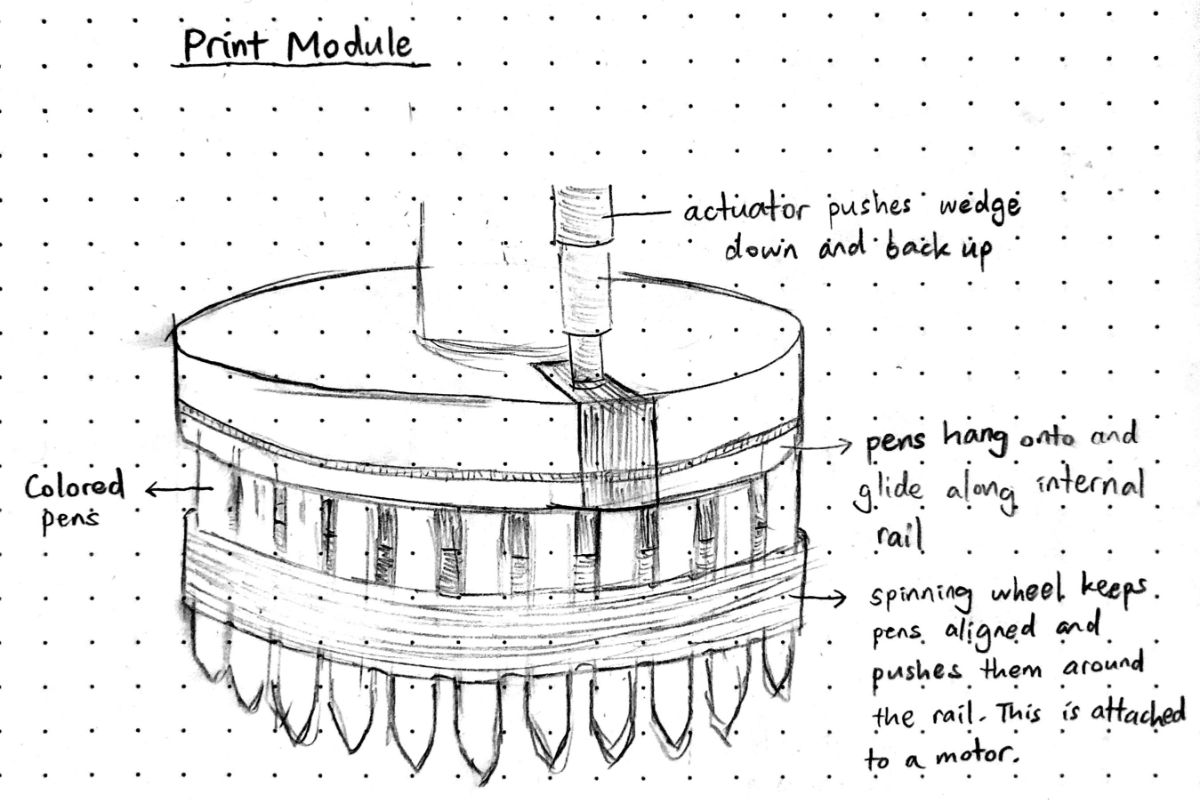 Print Module
actuator pushes wedge
down and back up
pens hang onto and
glide along internal
rail
Colored
pens
spinning wheel keeps
pens aligned and
pushes them around
the rail. This is attached
to a motor.